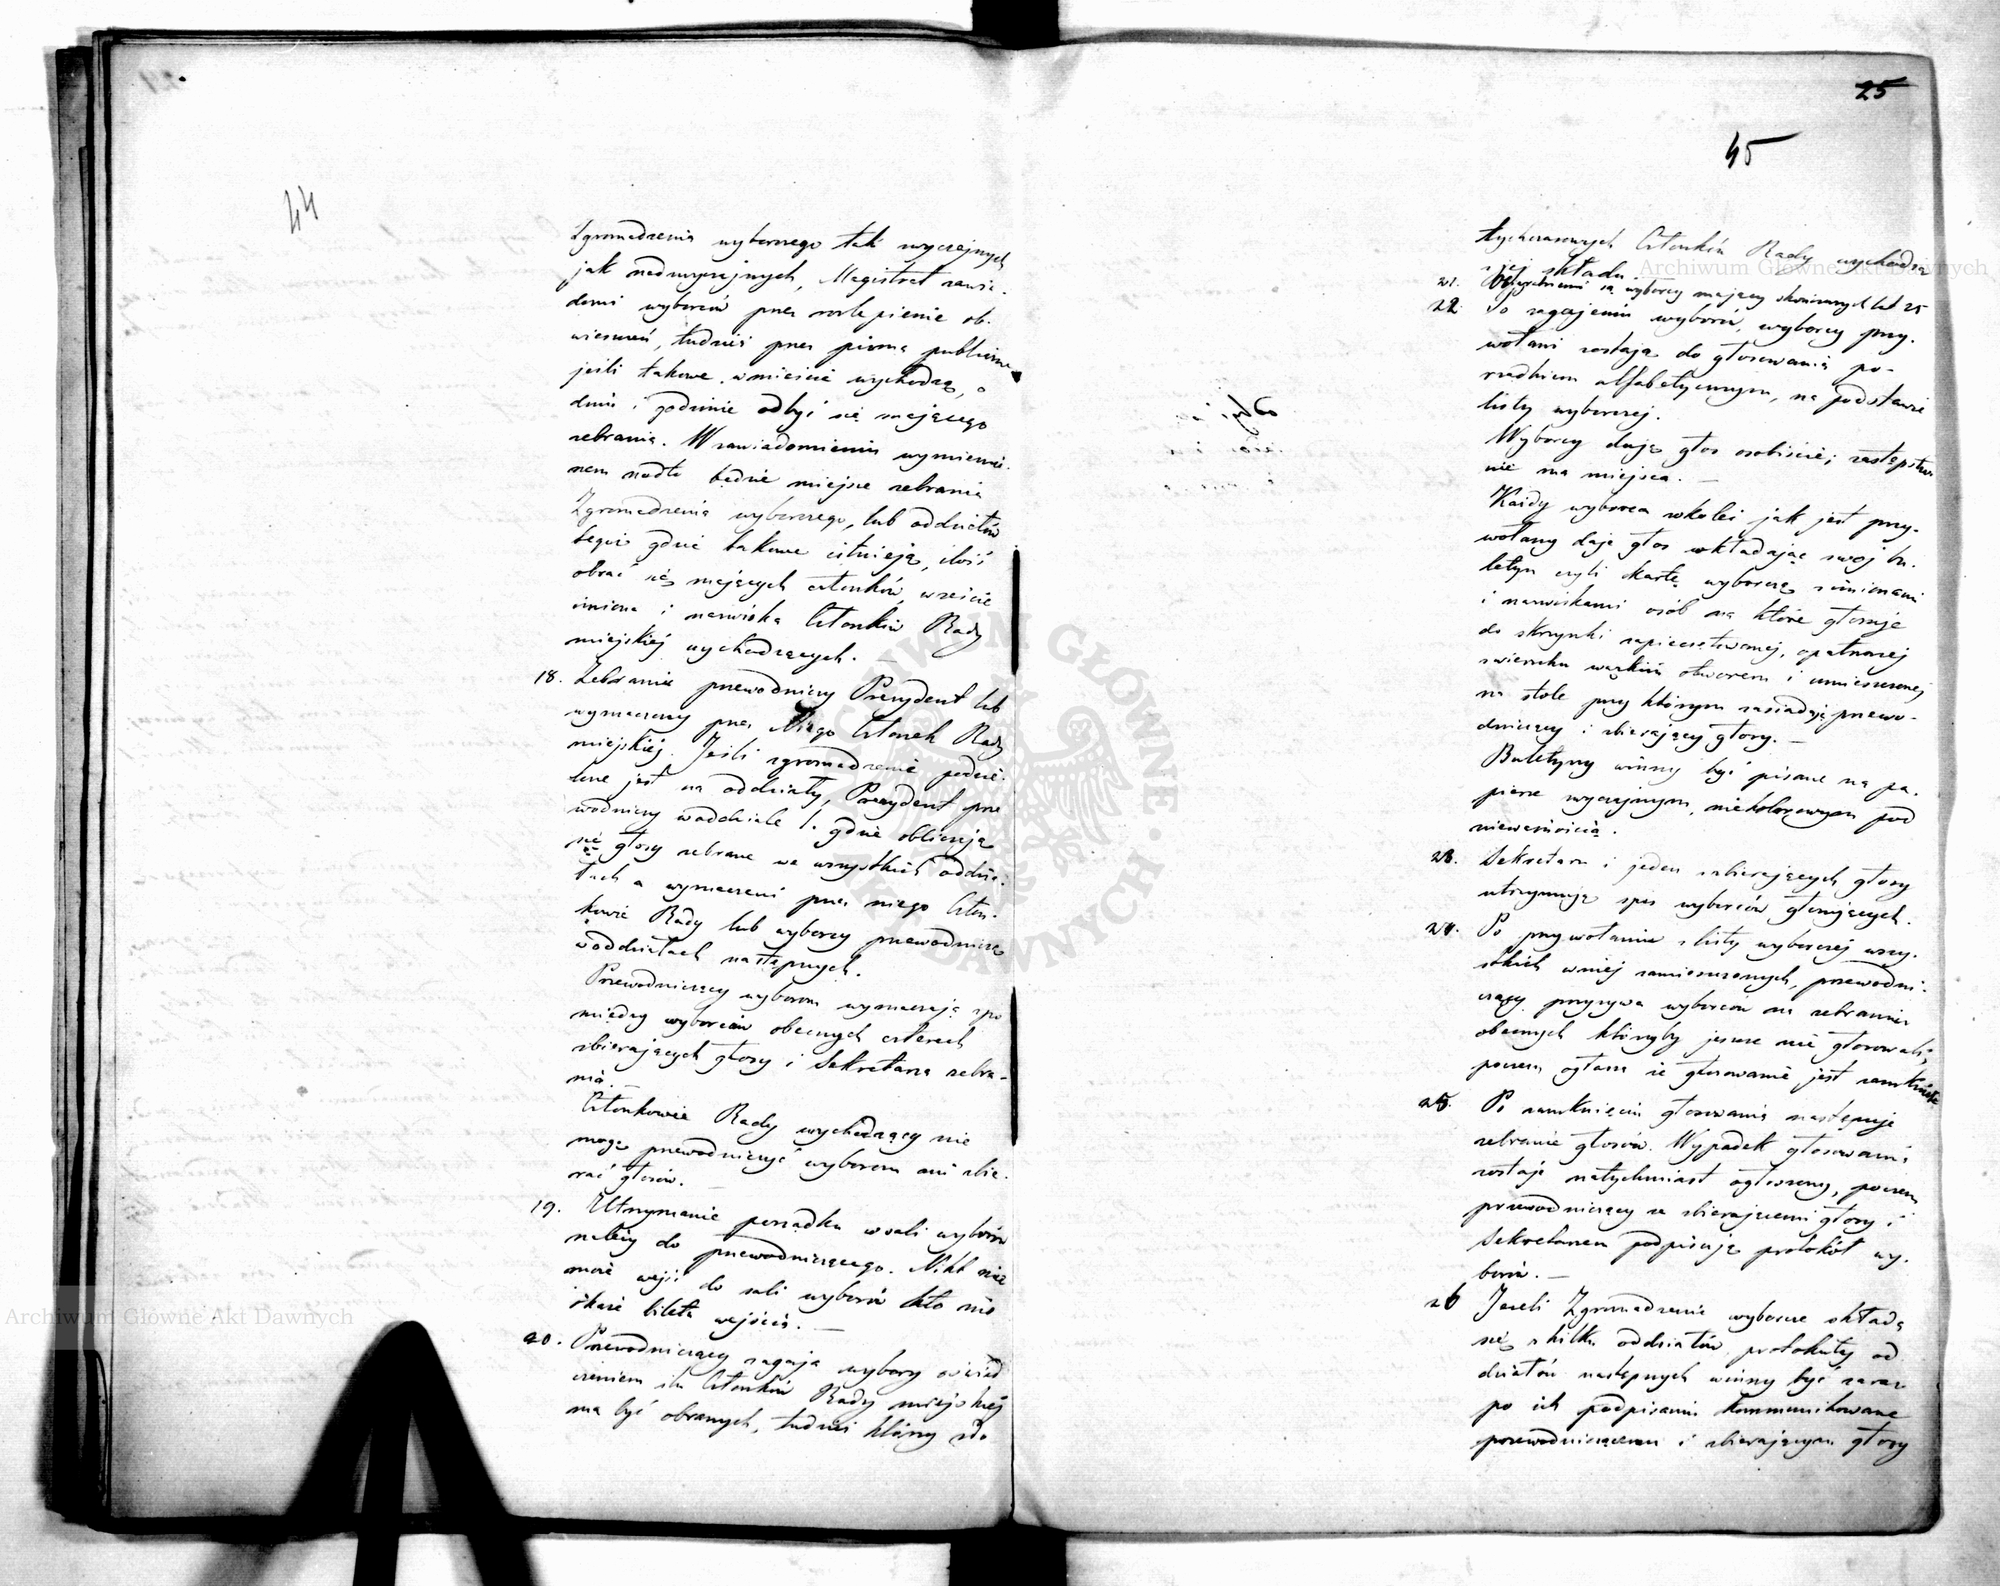 44
Zgromadzenia wyborczego tak zwyczajnych
jak nadzwyczajnych, Magistrat zawia-
domi wyborców przez rozlepienie ob-
wieszczeń, tudzież przez pisma publiczne
jeśli takowe w mieście wychodzą, o
dniu i godzinie odbyć się mającego
zebrania. W zawiadomieniu wymienio-
nem nadto będzie miejsce zebrania
Zgromadzenia wyborczego, lub oddziałów
tegoż gdzie takowe istnieją, ilość
obrać się mających członków, wreszcie
imiona i nazwiska Członków Rady
miejskiéj wychodzących.
18. Zebranie przewodniczy Prezydent lub
wyznaczony przez Niego Członek Rady
miejskiéj. Jeśli zgromadzenie podzie-
lone jest na oddziały, Prezydent prze
wodniczy w oddziale 1. gdzie obliczają
się głosy zebrane we wszystkich oddzia-
łach a wyznaczeni przez niego Człon-
kowie Rady lub wyborcy przewodniczą
w oddziałach następnych.
Przewodniczący wyborom wyznaczają spo
między wyborców obecnych czterech
zbierających głosy i Sekretarza zebra-
nia.
Członkowie Rady wychodzący nie
mogą przewodniczyć wyborom ani zbie-
rać głosów.
19. Utrzymanie porządku w sali wyborów
należy do przewodniczącego. Nikt nie
może wejść do sali wyborów kto nie
okaże biletu wejścia.
20. Przewodniczący zagaja wybory oświad
czeniem ilu Członków Rady miejskiéj
ma być obranych, tudzież którzy z do
25
45
tychczasowych Członków Rady wychodzą
z jej składu.
21. są wyborcy mający skończonych lat 25
22. Po zagajeniu wyborów, wyborcy przy-
wołani zostają do głosowania po-
rządkiem alfabetycznym, na podstawie
listy wyborczej.
Wyborcy dają głos osobiście; zastępstwo
nie ma miejsca.
Każdy wyborca z kolei jak jest przy-
wołany daje głos wkładając swój bu-
letyn czyli kartę wyborczą z imionami
i nazwiskami osób na które głosuje
do skrzynki zapieczętowanej, opatrzonej
z wierzchu wązkim otworem i umieszczonej
na stole przy którym zasiadają przewo-
dniczący i zbierający głosy.
Buletyny winny być pisane na pa-
pierze zwyczajnym, niekolorowym pod
nieważnością.
23. Sekretarz i jeden z zbierających głosy
utrzymują spis wyborców głosujących.
24. Po przywołaniu z listy wyborczej wszy-
stkich w niej zamieszczonych, przewodni-
czący przyzywa wyborców na zebraniu
obecnych którzyby jeszcze nie głosowali,
poczem ogłasza że głosowanie jest zamknięte
25. Po zamknięciu głosowania następuje
zebranie głosów. Wypadek głosowania
zostaje natychmiast ogłoszony, poczem
przewodniczący ze zbierającemi głosy i
Sekretarzem podpisują protokół wy-
borów.
26 Jeżeli Zgromadzenie wyborcze składa
się z kilku oddziałów, protokuły od
działów następnych winny być zaraz
po ich podpisaniu kommunikowane
przewodniczącemu i zbierającym głosy
Archiwum Główne Akt Dawnych
Archiwum Główne Akt Dawnych
ARCHIWUM GŁÓWNE AKT DAWNYCH